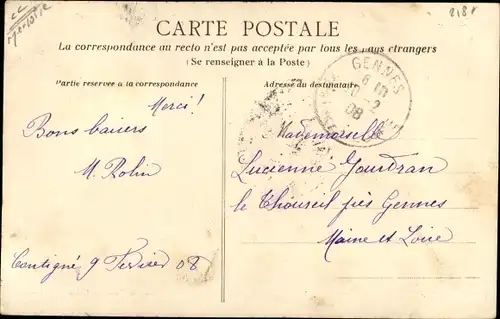 CARTE POSTALE
La correspondance au recto n'est pas acceptée par tous les pays étrangers
(Se renseigner à la Poste)
Partie réservée à la correspondance
Adresse du destinataire
GENNES
6
2
08
Merci!
Bons baisers
M. Rolin
Contigné 9 Février 08
Mademoiselle
Lucienne Jourdran
le Thoureil près Gennes
Maine et Loire
218